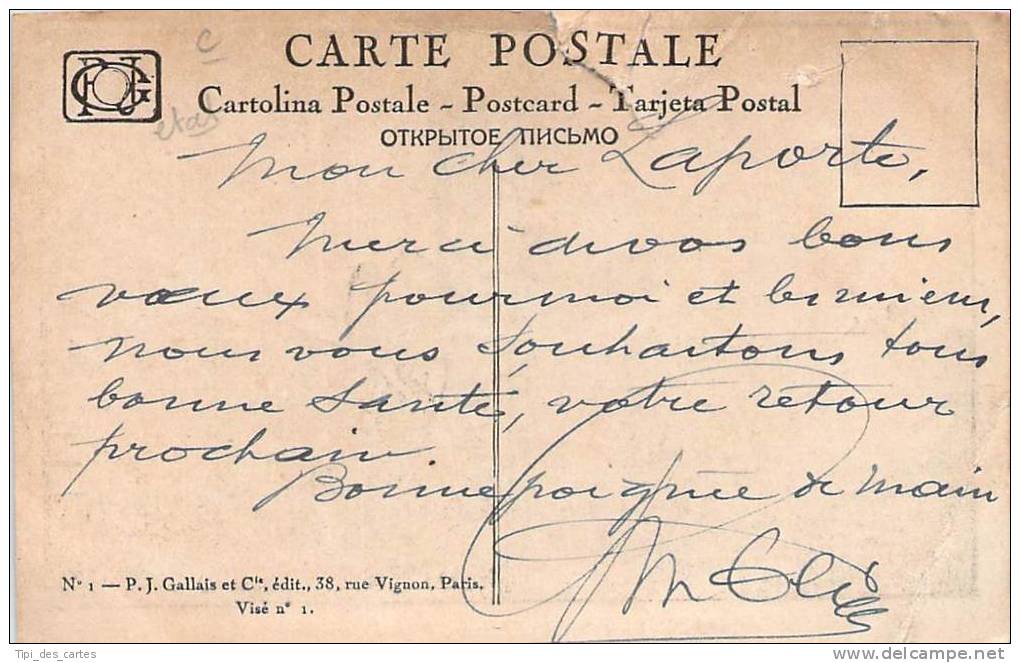 CARTE POSTALE
Cartolina Postale - Postcard - Tarjeta Postal
ОТКРЫТОЕ ПИСЬМО
C
etat
Mon cher Laporte,
Merci de vos bons
vœux pour moi et les miens,
nous vous souhaitons tous
bonne santé, votre retour
prochain.
Bonne poignée de main
N° 1 — P. J. Gallais et Cie, édit., 38, rue Vignon, Paris.
Visé n° 1.
Tipi_des_cartes
www.delcampe.net